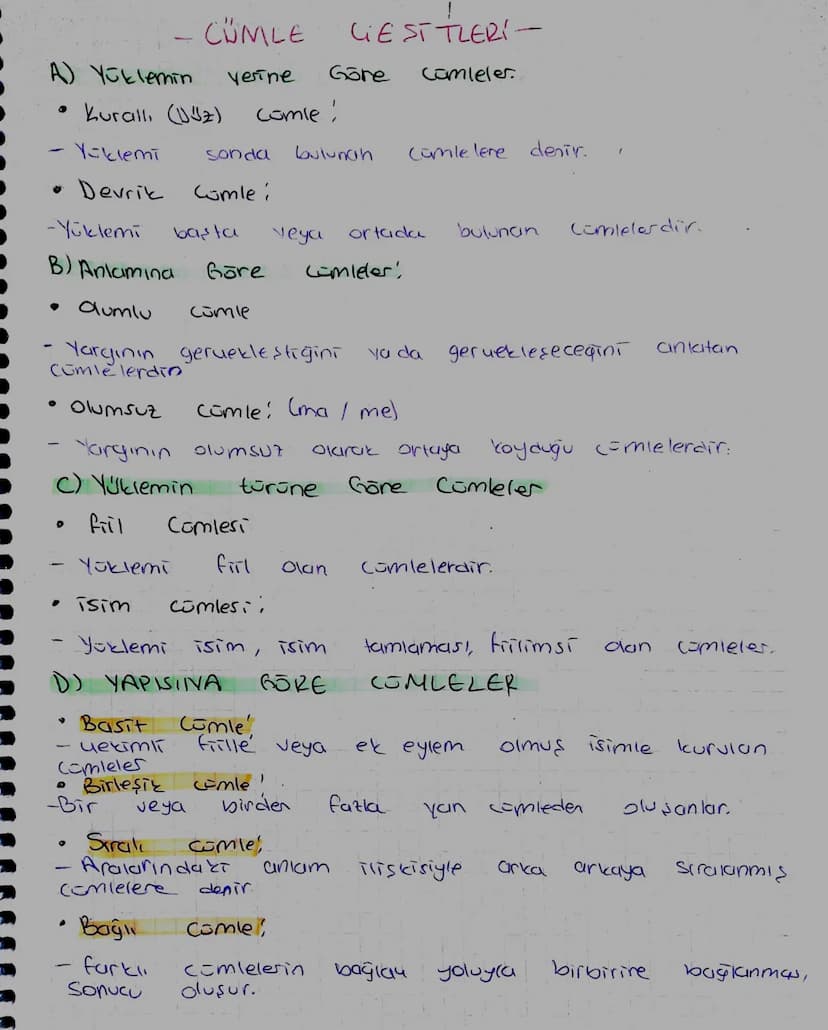 - CÜMLE ÇEŞİTLERİ -
A) Yüklemin yerine Göre cümleler.
• Kurallı (Düz) cümle:
- Yüklemi sonda bulunan cümlelere denir.
• Devrik cümle:
- Yüklemi başta veya ortada bulunan cümlelerdir.
B) Anlamına Göre cümleler:
• Olumlu cümle
- Yargının gerçekleştiğini ya da gerçekleşeceğini anlatan
cümlelerdir
• Olumsuz cümle: (ma / me)
- Yargının olumsuz olarak ortaya koyduğu cümlelerdir.
C) Yüklemin türüne Göre Cümleler
• fiil Cümlesi
- Yüklemi fiil olan cümlelerdir.
• isim cümlesi:
- Yüklemi isim, isim tamlaması, fiilimsi olan cümleler.
D) YAPISINA GÖRE CÜMLELER
• Basit Cümle:
- çekimli fiille veya ek eylem olmuş isimle kurulan
cümleler
• Birleşik cümle:
- Bir veya birden fazla yan cümleden oluşanlar.
• Sıralı cümle:
- Aralarındaki anlam ilişkisiyle arka arkaya sıralanmış
cümlelere denir
• Bağlı cümle:
- farklı cümlelerin bağlaç yoluyla birbirine bağlanması,
sonucu oluşur.